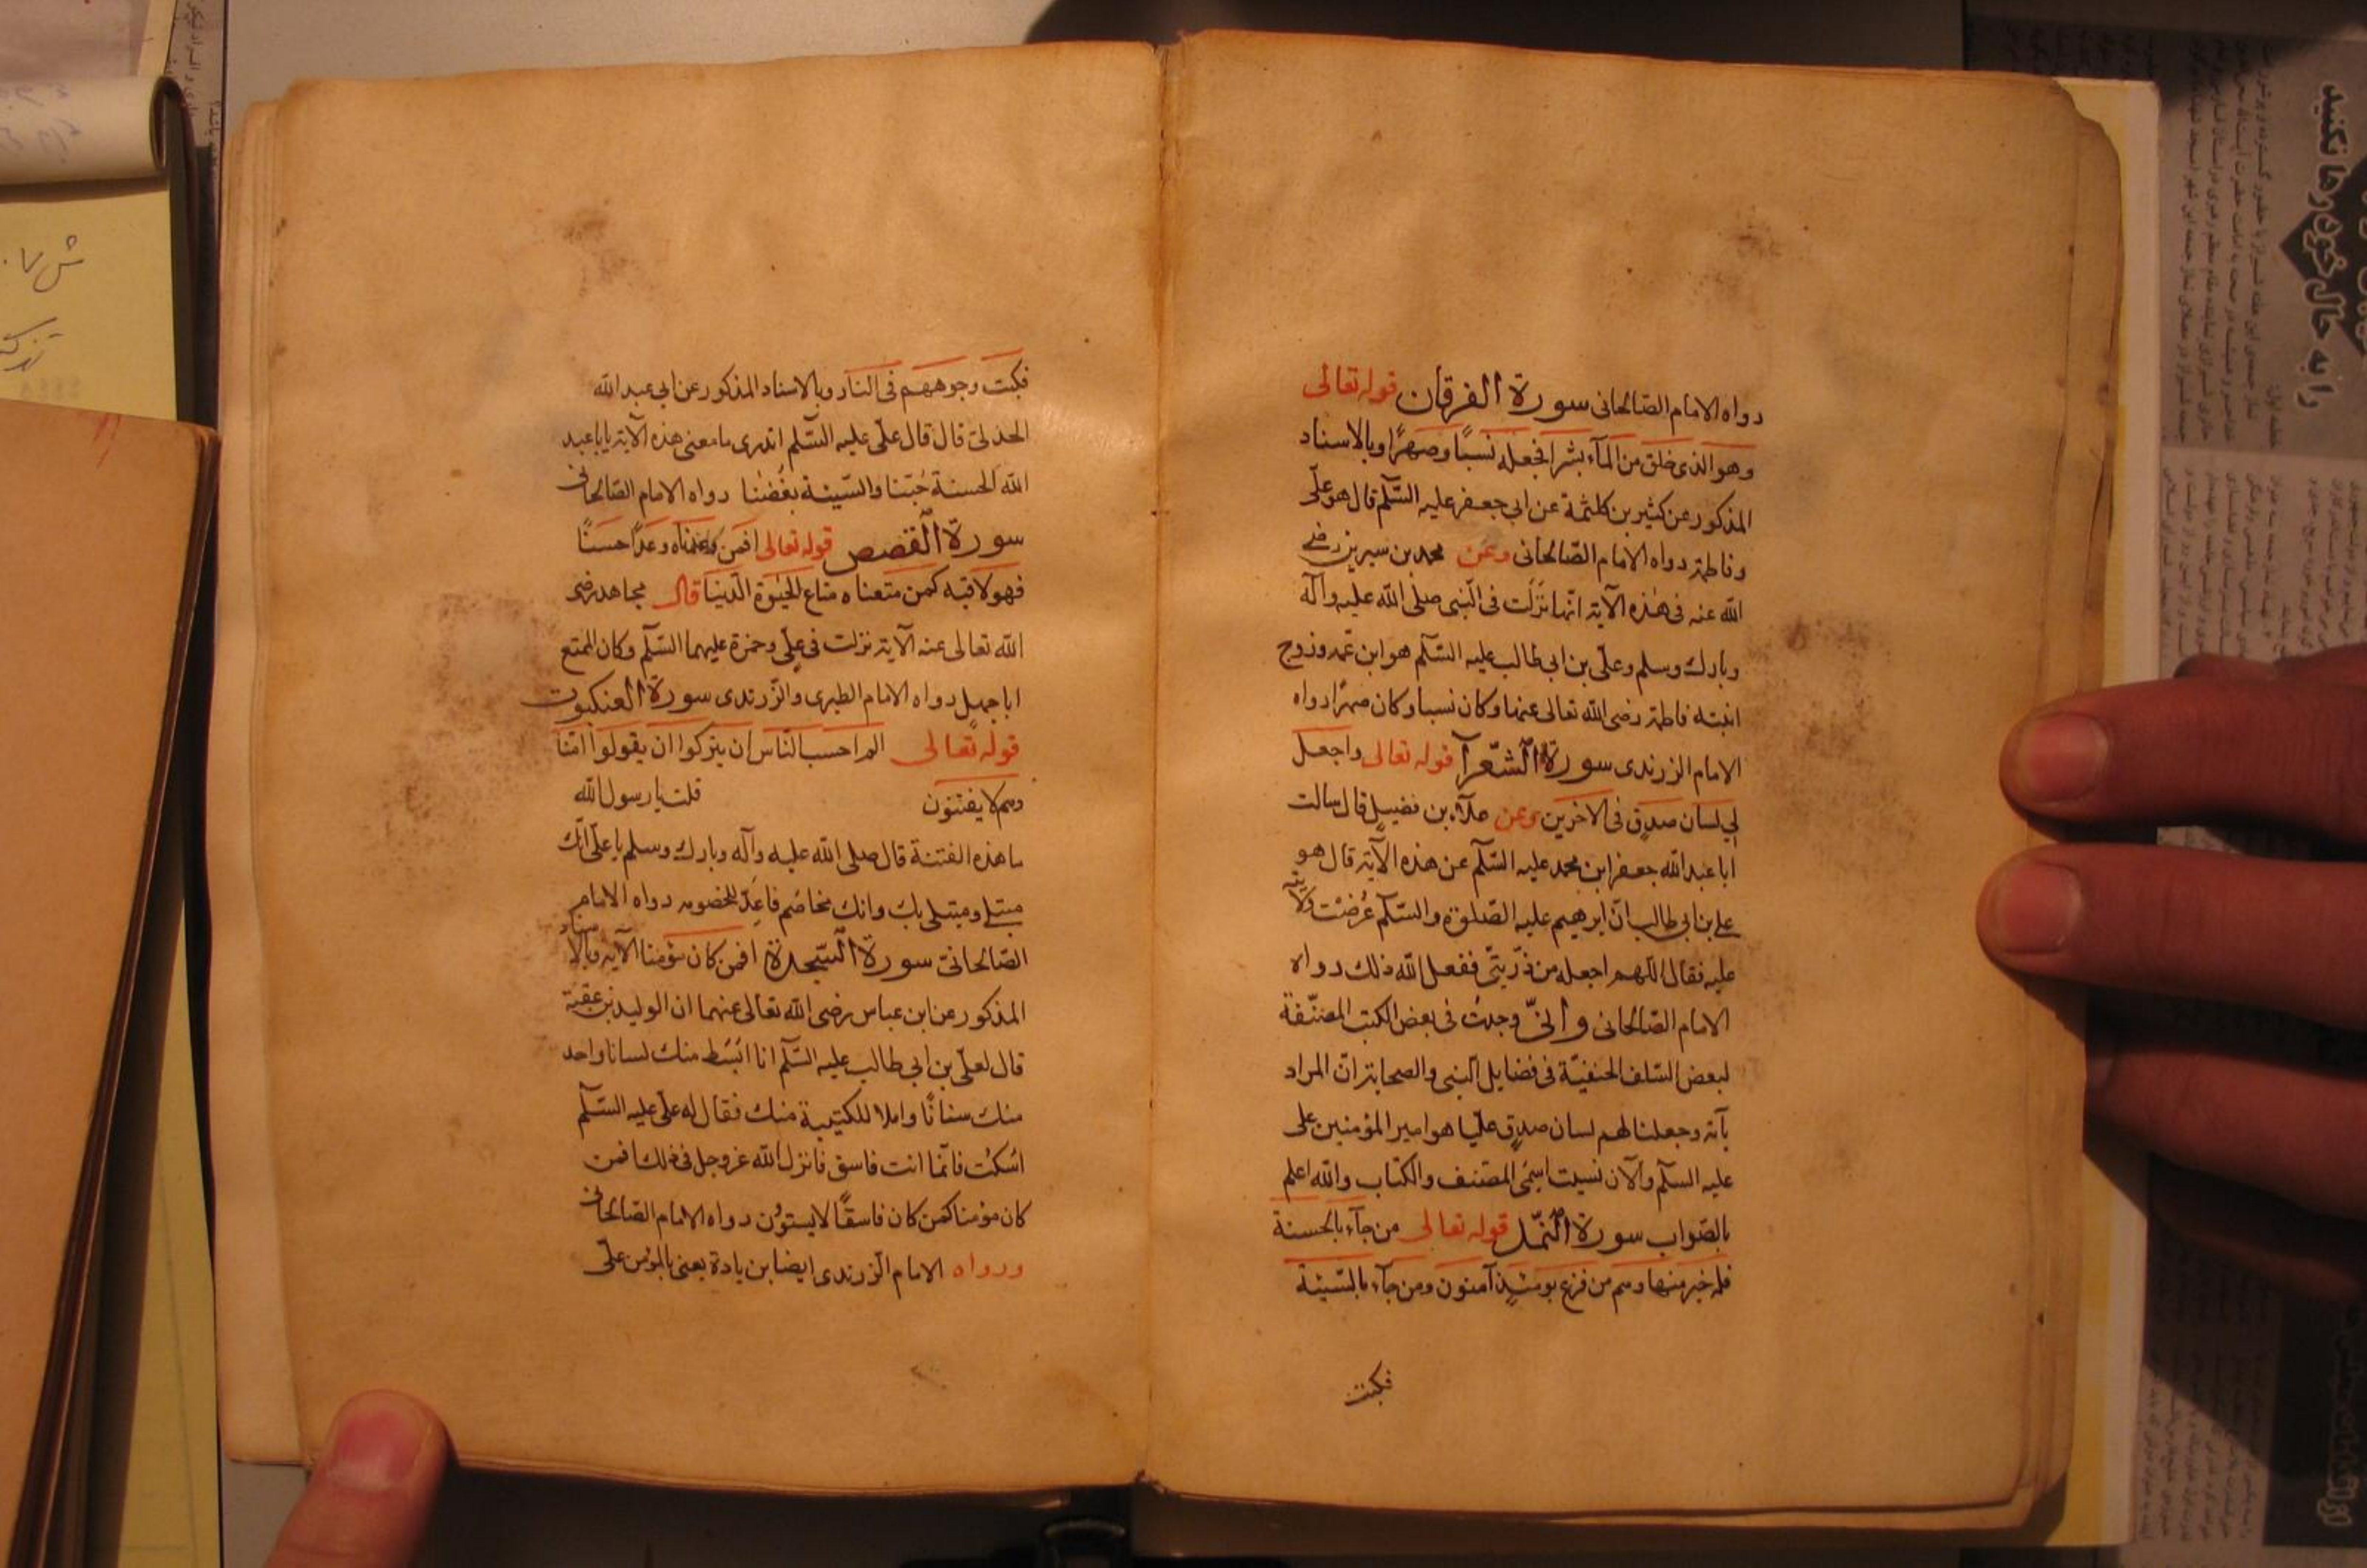 رواه الامام الصالحانى سورة الفرقان قوله تعالى
وهو الذى خلق من المآء بشرا فجعله نسبًا وصهرًا وبالاسناد
المذكور عن كثير بن كلثمة عن ابى جعفر عليه السّلم قال هو علّى
وفاطمة رواه الامام الصّالحانى وعن محمد بن سيرين رضى
الله عنه فى هذه الآية انّها نَزَلَت فى النّبى صلى الله عليه وآله
وبارك وسلم وعلّى بن ابى طالب عليه السّلم هو ابن عمه وزوج
ابنته فاطمة رضى الله تعالى عنها وكان نسبا وكان صهرًا رواه
الامام الزرندى سورة الشّعرآ قوله تعالى واجعل
لى لسان صدق فى الاخرين وعن علآء بن فضيل قال سالت
ابا عبد الله جعفر ابن محمد عليه السّلم عن هذه الآية قال هو
على بن ابى طالب انّ ابرهيم عليه الصّلوة والسّلم عُرضَت ولايته
عليه فقال اللّهم اجعله من ذّريتّى ففعل الله ذلك رواه
الامام الصّالحانى وانّى وجدتُ فى بعض الكتب المصنّفة
لبعض السّلف الحنفيّة فى فضايل النّبى والصحابة انّ المراد
بآية وجعلنا لهم لسان صدقٍ عليّا هو امير المؤمنين على
عليه السلّم والآن نسيت اسمَى المصّنف والكتاب والله اعلم
بالصّواب سورة النّمل قوله تعالى من جآء بالحسنة
فله خير منها وهم من فزع يومئذٍ آمنون ومن جآء بالسّيئة
فكبت
فكبت وجوههم فى النار وبالاسناد المذكور عن ابى عبد الله
الجدلى قال قال علّى عليه السّلم اتدرى ما معنى هذه الآية يابا عبد
الله الحسنة حُبّنا والسّيئة بغُضُنا رواه الامام الصّالحانى
سورة القصص قوله تعالى افمن وعدناه وعدًا حسنًا
فهو لاقيه كمن متّعناه متاع الحيوة الدّنيا قال مجاهد رضى
الله تعالى عنه الآية نزلت فى علّى وحمزة عليهما السّلم وكان الممتع
ابا جهل رواه الامام الطبرى والزّرندى سورة العنكبوت
قوله تعالى الم احسب النّاس ان يتركوا ان يقولوا آمّنا
وهم لا يفتنون قلت يا رسول الله
ما هذه الفتنة قال صلى الله عليه وآله وبارك وسلم يا علّى انّك
مبتلى ومبتلى بك وانك مخاصَم فاعِدّ للخصومه رواه الامام
الصّالحانىّ سورة السّجدة افمن كان مؤمنا الآية وبالاسناد
المذكور عن ابن عباس رضى الله تعالى عنهما ان الوليد بن عقبة
قال لعلّى بن ابى طالب عليه السّلم انا ابَسَط منك لسانا واحد
منك سنانًا واملا للكتيبة منك فقال له علّى عليه السّلم
اسُكت فانّما انت فاسق فانزل الله عزوجل فى ذلك افمن
كان مؤمنا كمن كان فاسقًا لا يستوُن رواه الامام الصّالحانى
ورواه الامام الزرندى ايضا بزيادة يعنى بالمؤمن علّى
را به حال خود رها نكنيد